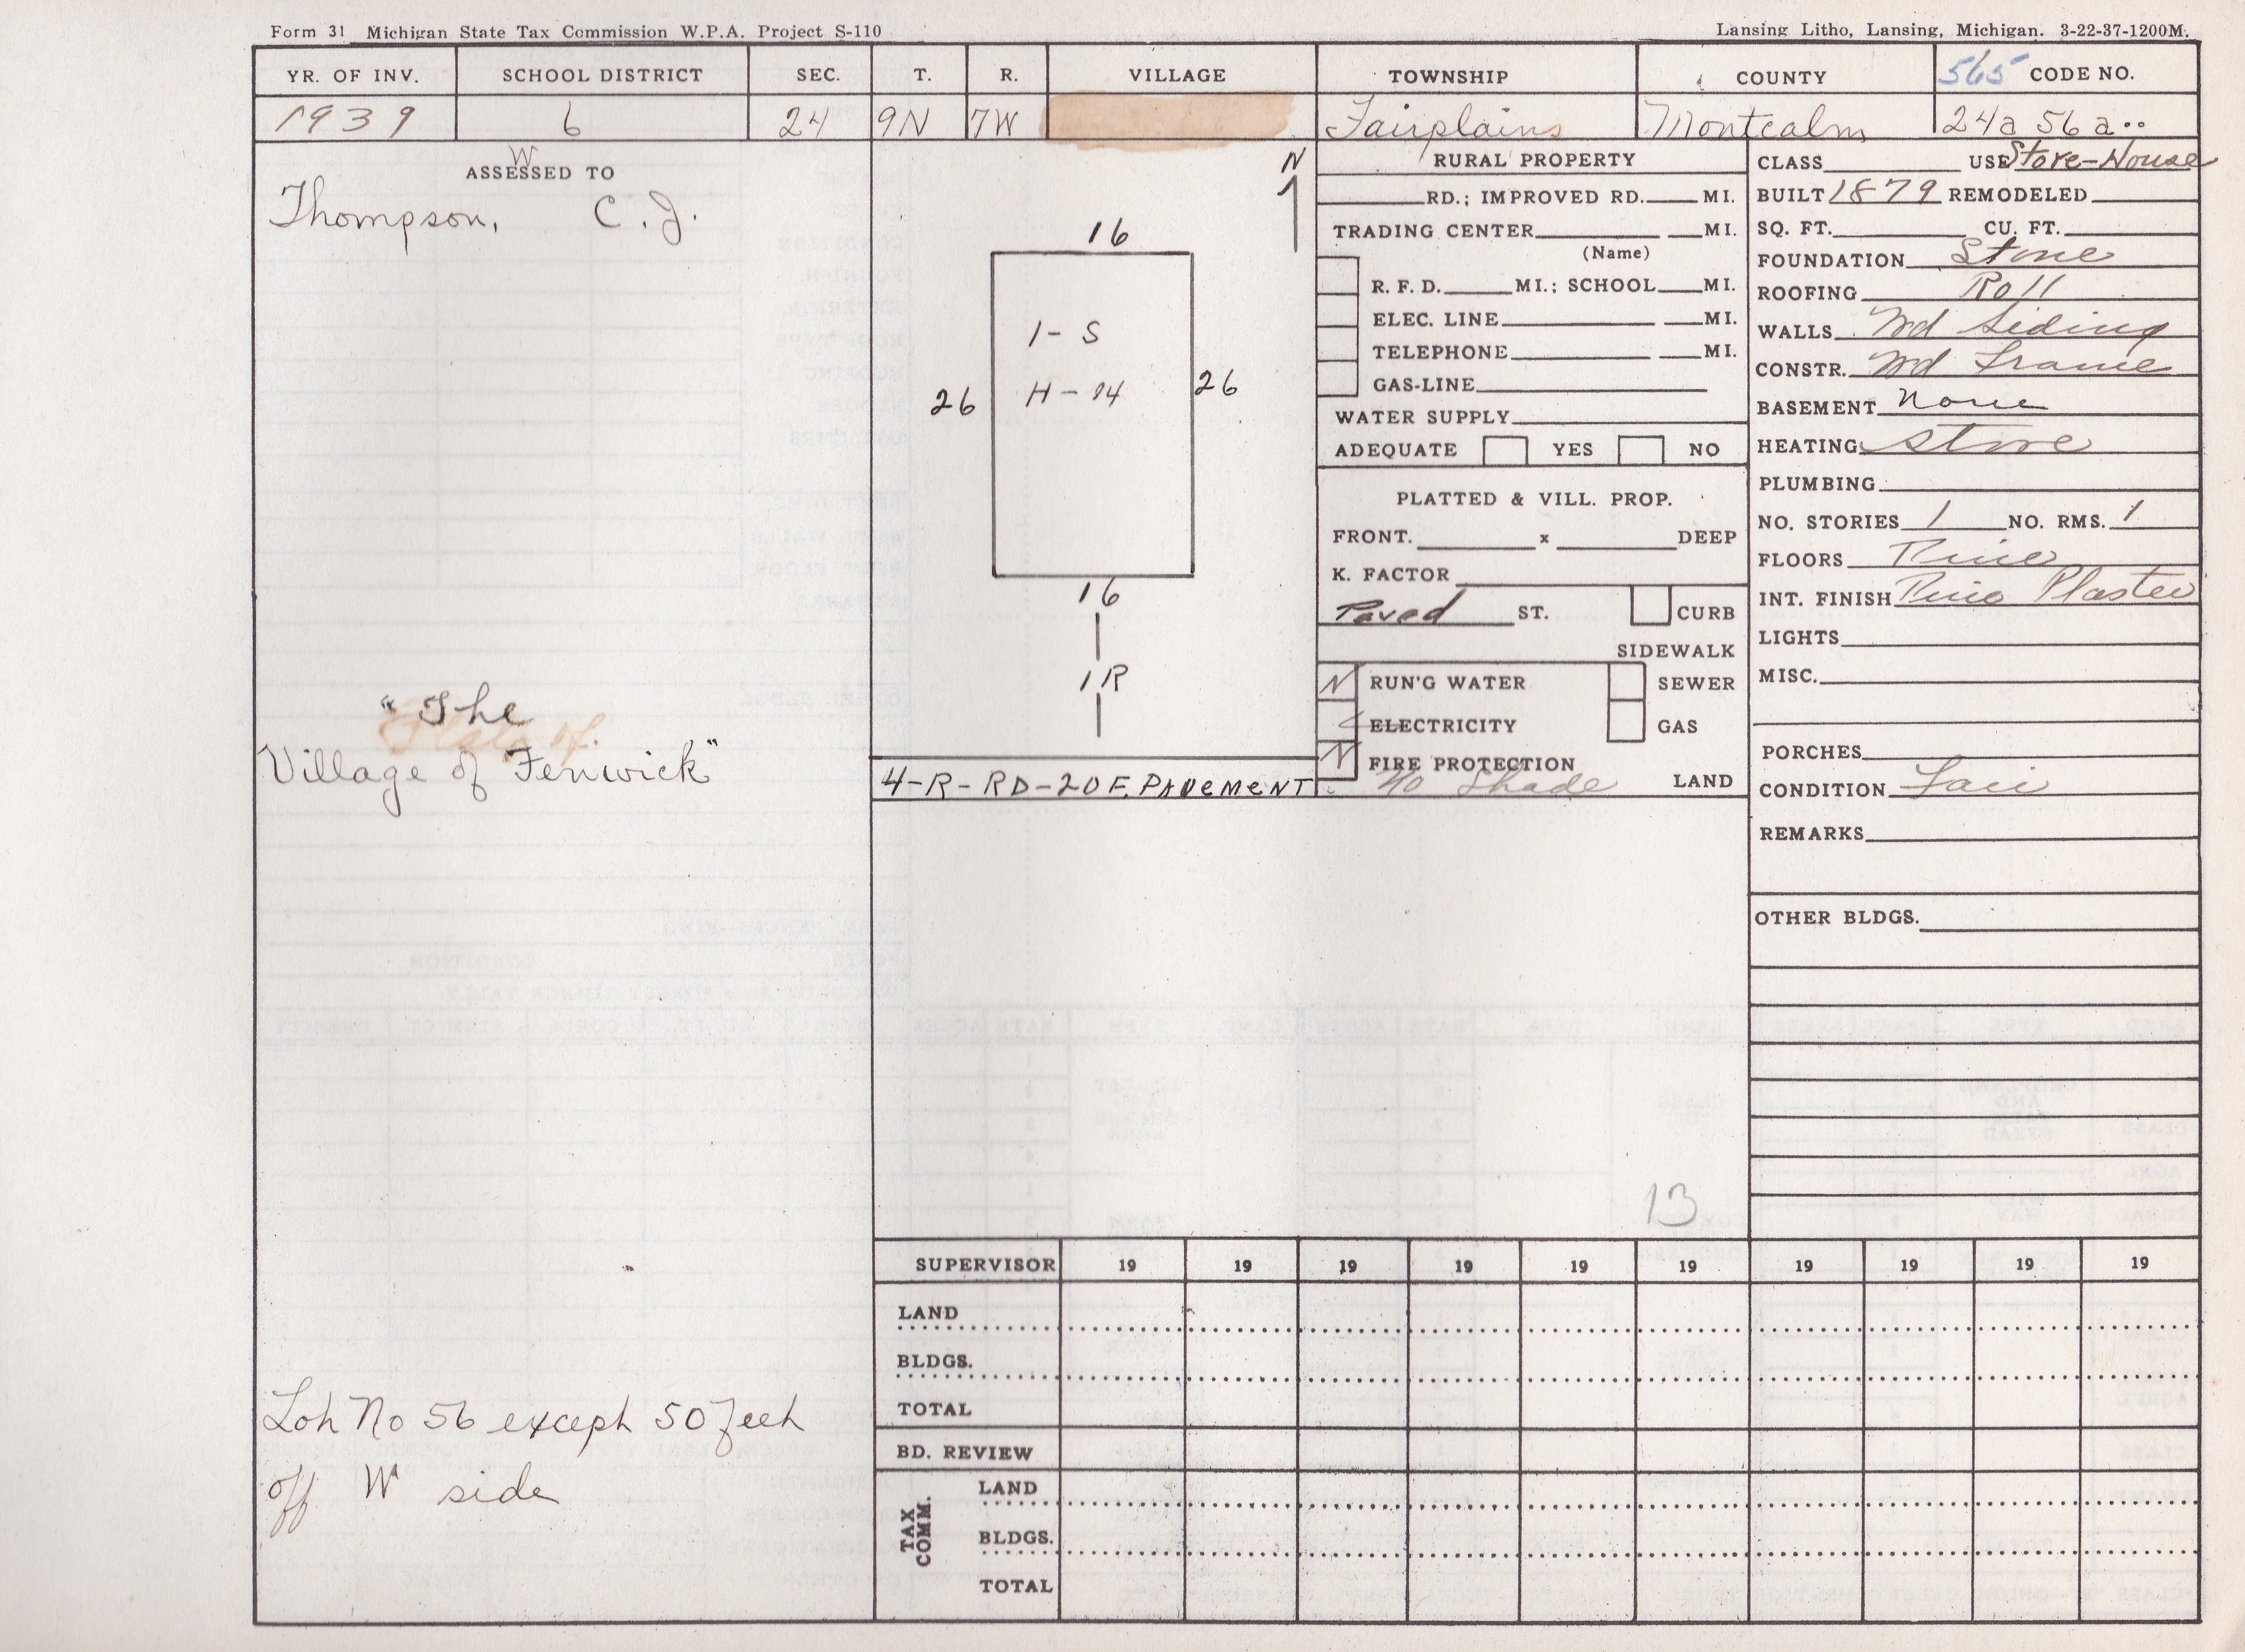 Form 31 Michigan State Tax Commission W.P.A. Project S-110
Lansing Litho, Lansing, Michigan. 3-22-37-1200M.
YR. OF INV. SCHOOL DISTRICT SEC. T. R. VILLAGE TOWNSHIP COUNTY 565 CODE NO.
1939 6 24 9N 7W Fairplains Montcalm 24a 56a..
W
ASSESSED TO
Thompson, C. J.
"The
Village of Fenwick"
Lot No 56 except 50 feet
off W side
N
16
1-S
H-14
26
26
16
1R
4-R-RD-20F. PAVEMENT
RURAL PROPERTY
RD.; IMPROVED RD. MI.
TRADING CENTER MI.
(Name)
R. F. D. MI.; SCHOOL MI.
ELEC. LINE MI.
TELEPHONE MI.
GAS-LINE
WATER SUPPLY
ADEQUATE YES NO
PLATTED & VILL. PROP.
FRONT. x DEEP
K. FACTOR
Paved ST. CURB
SIDEWALK
N RUN'G WATER SEWER
ELECTRICITY GAS
N FIRE PROTECTION
No Shade LAND
CLASS USE Store-House
BUILT 1879 REMODELED
SQ. FT. CU. FT.
FOUNDATION Stone
ROOFING Roll
WALLS Wd Siding
CONSTR. Wd Frame
BASEMENT None
HEATING Stove
PLUMBING
NO. STORIES 1 NO. RMS. 1
FLOORS Pine
INT. FINISH Pine Plaster
LIGHTS
MISC.
PORCHES
CONDITION Fair
REMARKS
OTHER BLDGS.
13
SUPERVISOR 19 19 19 19 19 19 19 19 19 19
LAND
BLDGS.
TOTAL
BD. REVIEW
TAX COMM.
LAND
BLDGS.
TOTAL